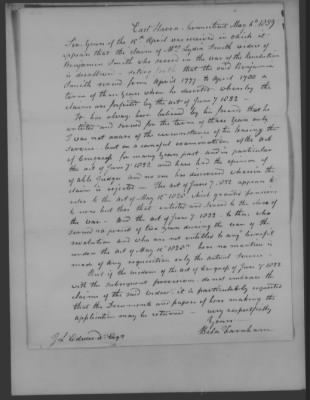 East Haven, Connecticut May 6th 1839
Sir, Yours of the 18th April was received in which it
appears that the claim of Mrs Lydia Smith widow of
Benjamin Smith who served in the war of the Revolution
is disallowed - stating that the said Benjamin
Smith served from April 1777 to April 1780 a
term of three years when he deserted whereby the
claims are forfeited by the act of June 7 1832 -
It has always been believed by his friends that he
enlisted and served for the term of three years only
I was not aware of the circumstance of his leaving the
service - but on a careful examination of the Acts
of Congress for many years past and in particular
the act of June 7, 1832 and have had the opinion of
able Judges and no one has discovered wherein the
claim is rejected - The act of June 7, 1832 appears to
refer to the act of May 15th 1828 which granted pensions
to none but those that enlisted and served to the close of
the war - And the act of June 7 1832 to those who
served no period of two years during the war of the
revolution and who are not entitled to any benefit
under the act of May 15 1828 here no mention is
made of any requisition only the actual service -
But if the wisdom of the act of Congress of June 7 1832
with the subsequent provisions do not embrace the
claims of the said widow, it is particularly requested
that the Documents and papers of hers making the
application may be returned - very respectfully
Yours
Bela Farnham
J L Edwards Esqr